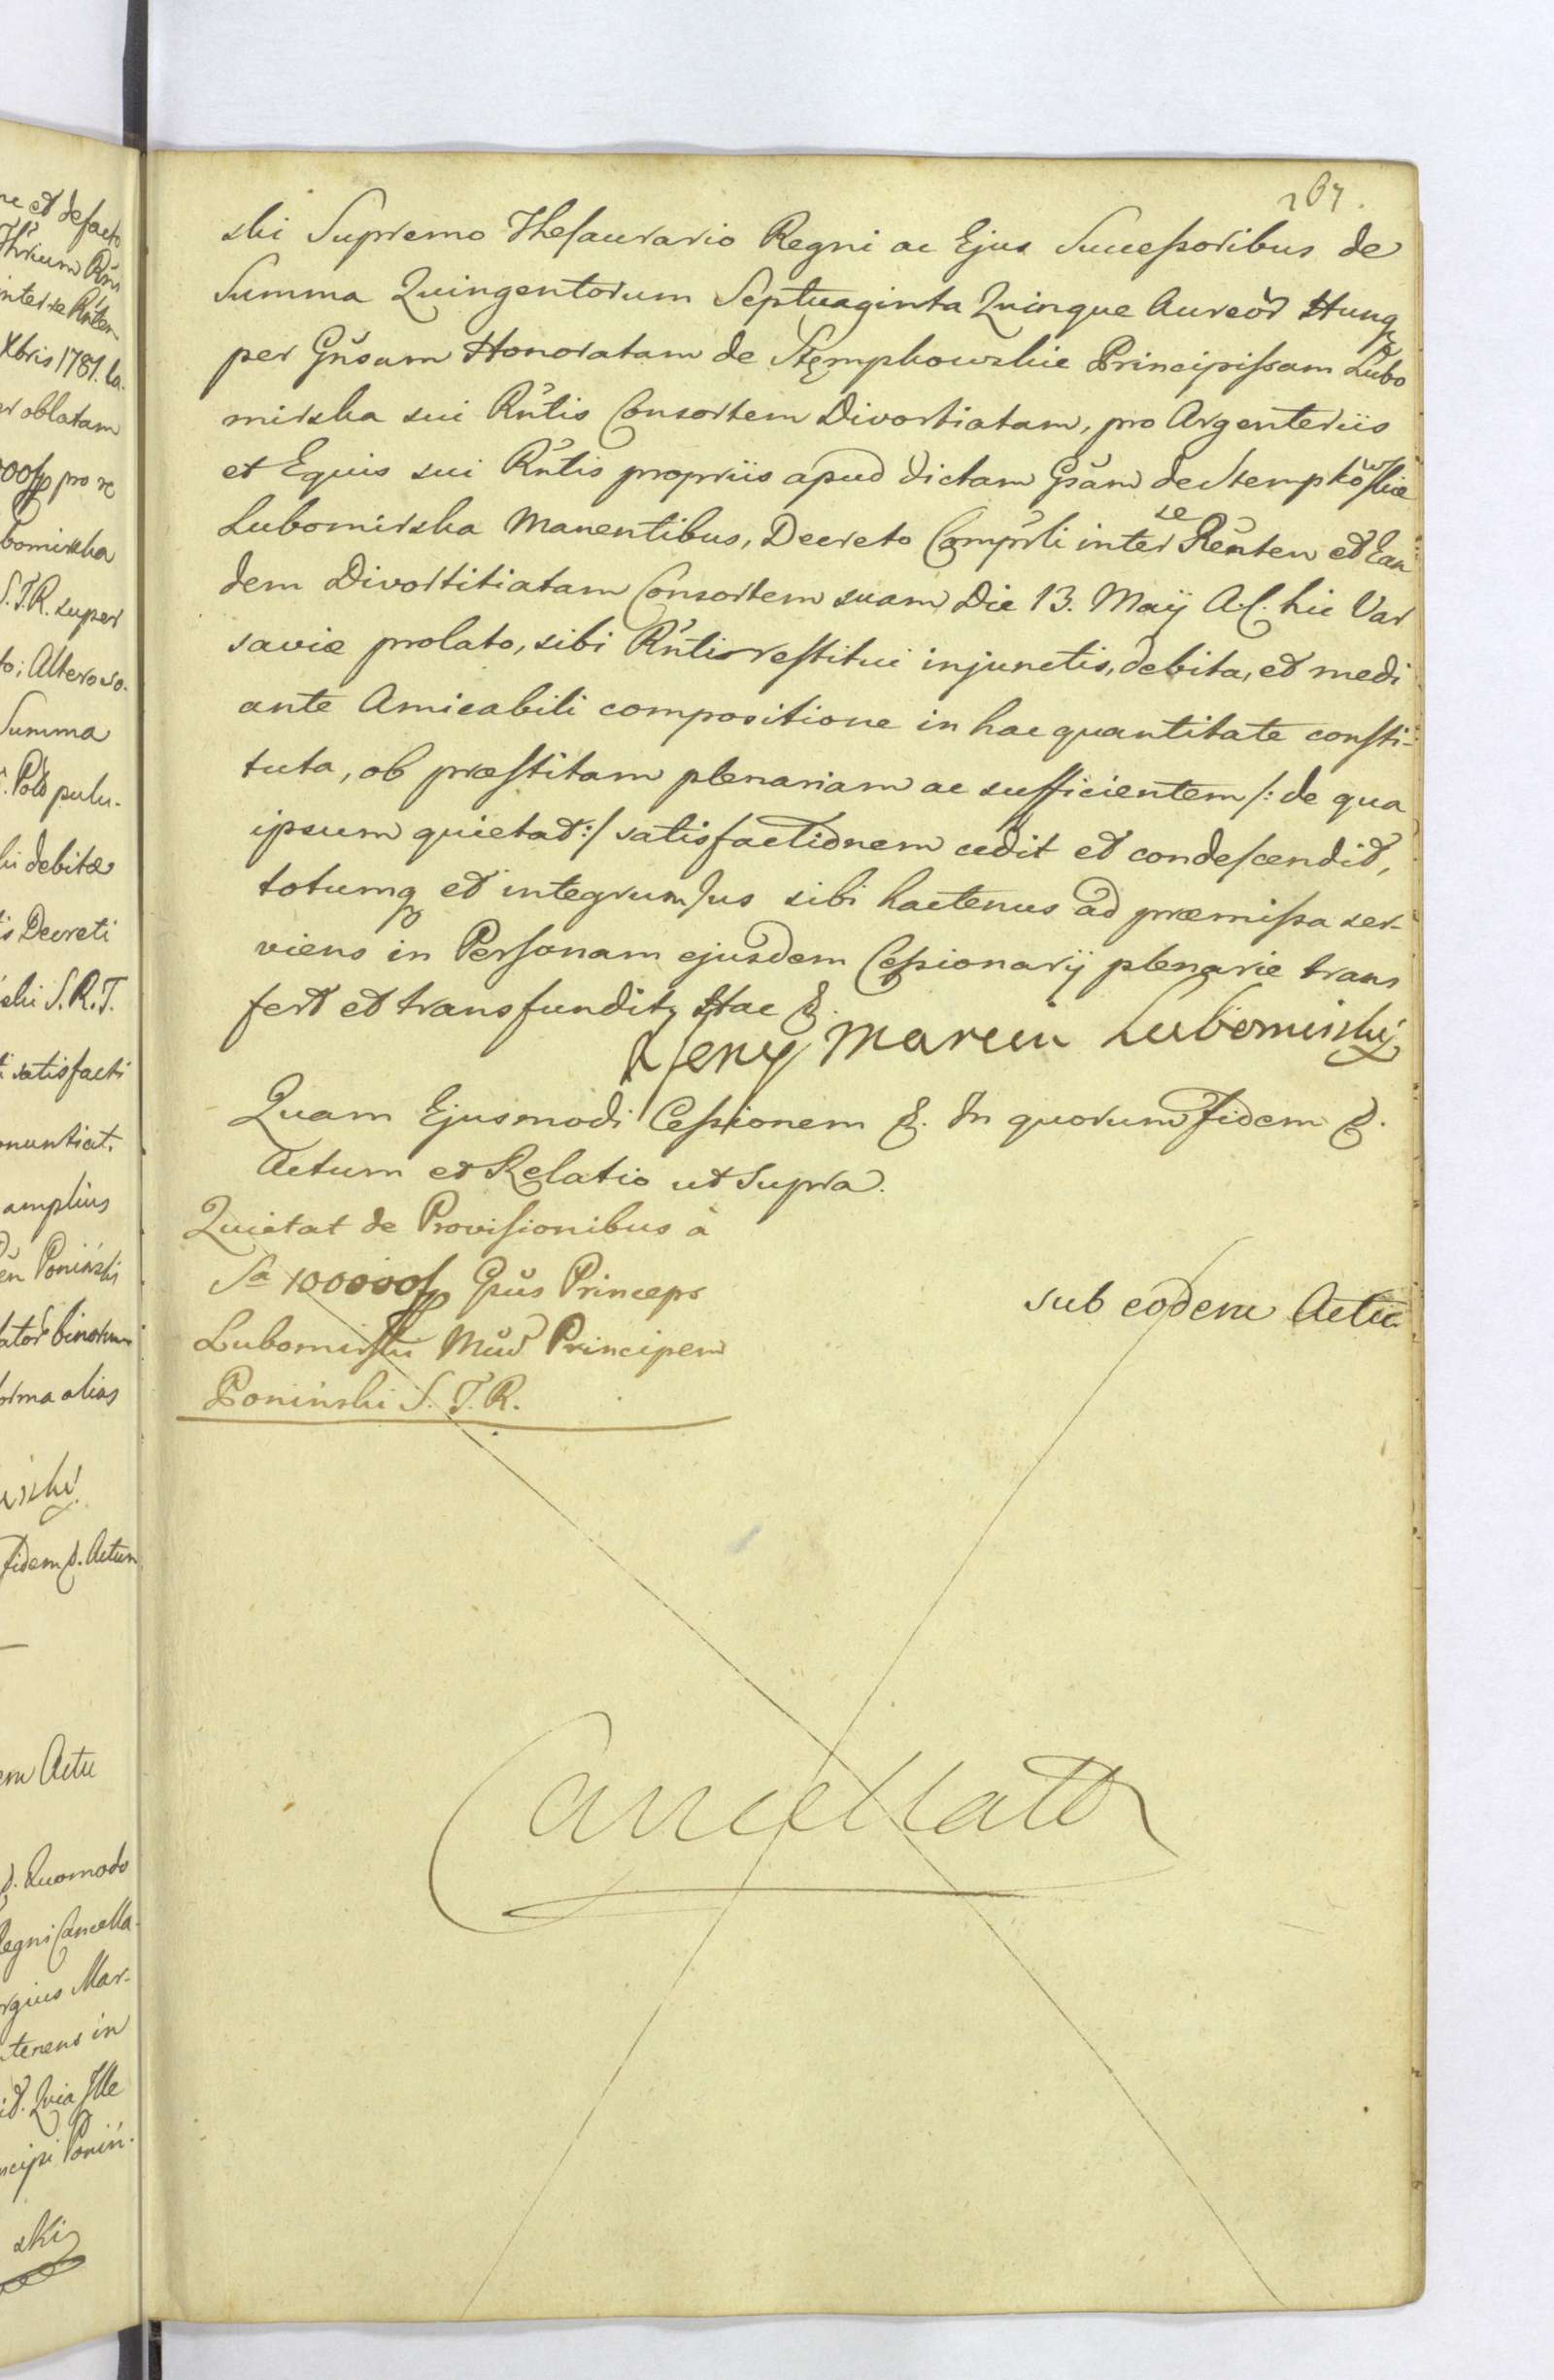 ne et defacto
Thrium Rñi
inter se Rñtem
Xbris 1781.
er oblatam
pro re
bomirska
S.T.R. super
to; Altero so-
Summa
pulu-
ki debitæ
is Decreti
ski S.R.T.
ti satisfacti
nuntiat.
amplius
Poniński
binorum
forma alias
irski
fidem &. Actum
em Actu
&. Quomodo
Regni Cancella-
rgius Mar-
tenens in
Quia Ille
ncipi Poniń-
ski
267.
ski Supremo Thesaurario Regni ac Ejus Successoribus de
Summa Quingentorum Septuaginta Quinque Aureor̃ Hung
per Gñsam Honoratam de Stępkowskie Principissam Lubo
mirska sui Rñtis Consortem Divortiatam, pro Argenteriis
et Equis sui Rñtis propriis apud dictam Gsam de Stempkowskie
Lubomirska Manentibus, Decreto Comprñli inter se Rentem et Ean
dem Divortitiatam Consortem suam Die 13. Maÿ A.C. hic Var
saviæ prolato, sibi Rñti restitui injunctis, debita, et medi
ante Amicabili compositione in hac quantitate consti-
tuta, ob præstitam plenariam ac sufficientem /: de qua
ipsum quietat :/ satisfactionem cedit et condescendit,
totumq et integrum Jus sibi hactenus ad præmissa ser-
viens in Personam ejusdem Cessionarÿ plenarie trans
fert et transfundit, Hac &.
Jerzy Marcin Lubomirski
Quam Ejusmodi Cessionem &. In quorum fidem &.
Actum et Relatio ut Supra.
Quietat de Provisionibus à
Sa 100000 fp Gsus Princeps
Lubomirski Principem
Poniński S. T. R.
sub eodem Actu
Cancellat